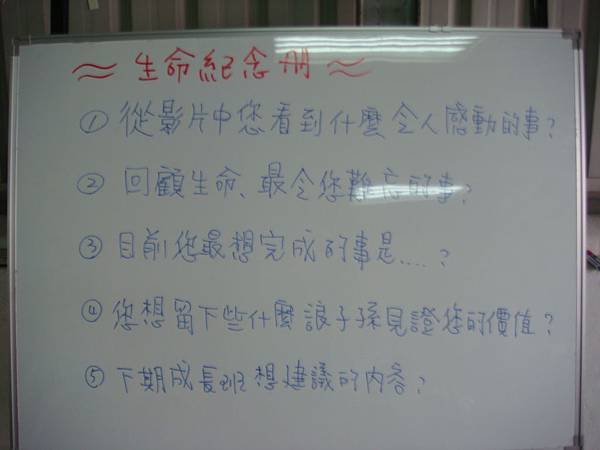 ≈ 生命紀念册 ≈
① 從影片中您看到什麼令人感動的事?
② 回顧生命、最令您難忘的事?
③ 目前您最想完成的事是....?
④ 您想留下些什麼讓子孫見證您的價值?
⑤ 下期成長班想建議的內容?